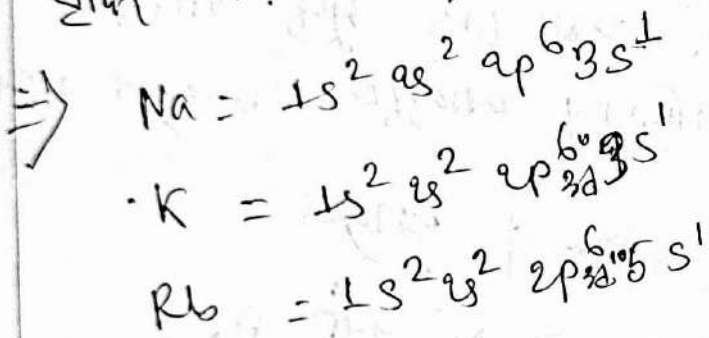 ⇒ Na = 1s² 2s² 2p⁶ 3s¹
K = 1s² 2s² 2p⁶ 3d s¹
Rb = 1s² 2s² 2p⁶ 3d¹⁰ 5s¹